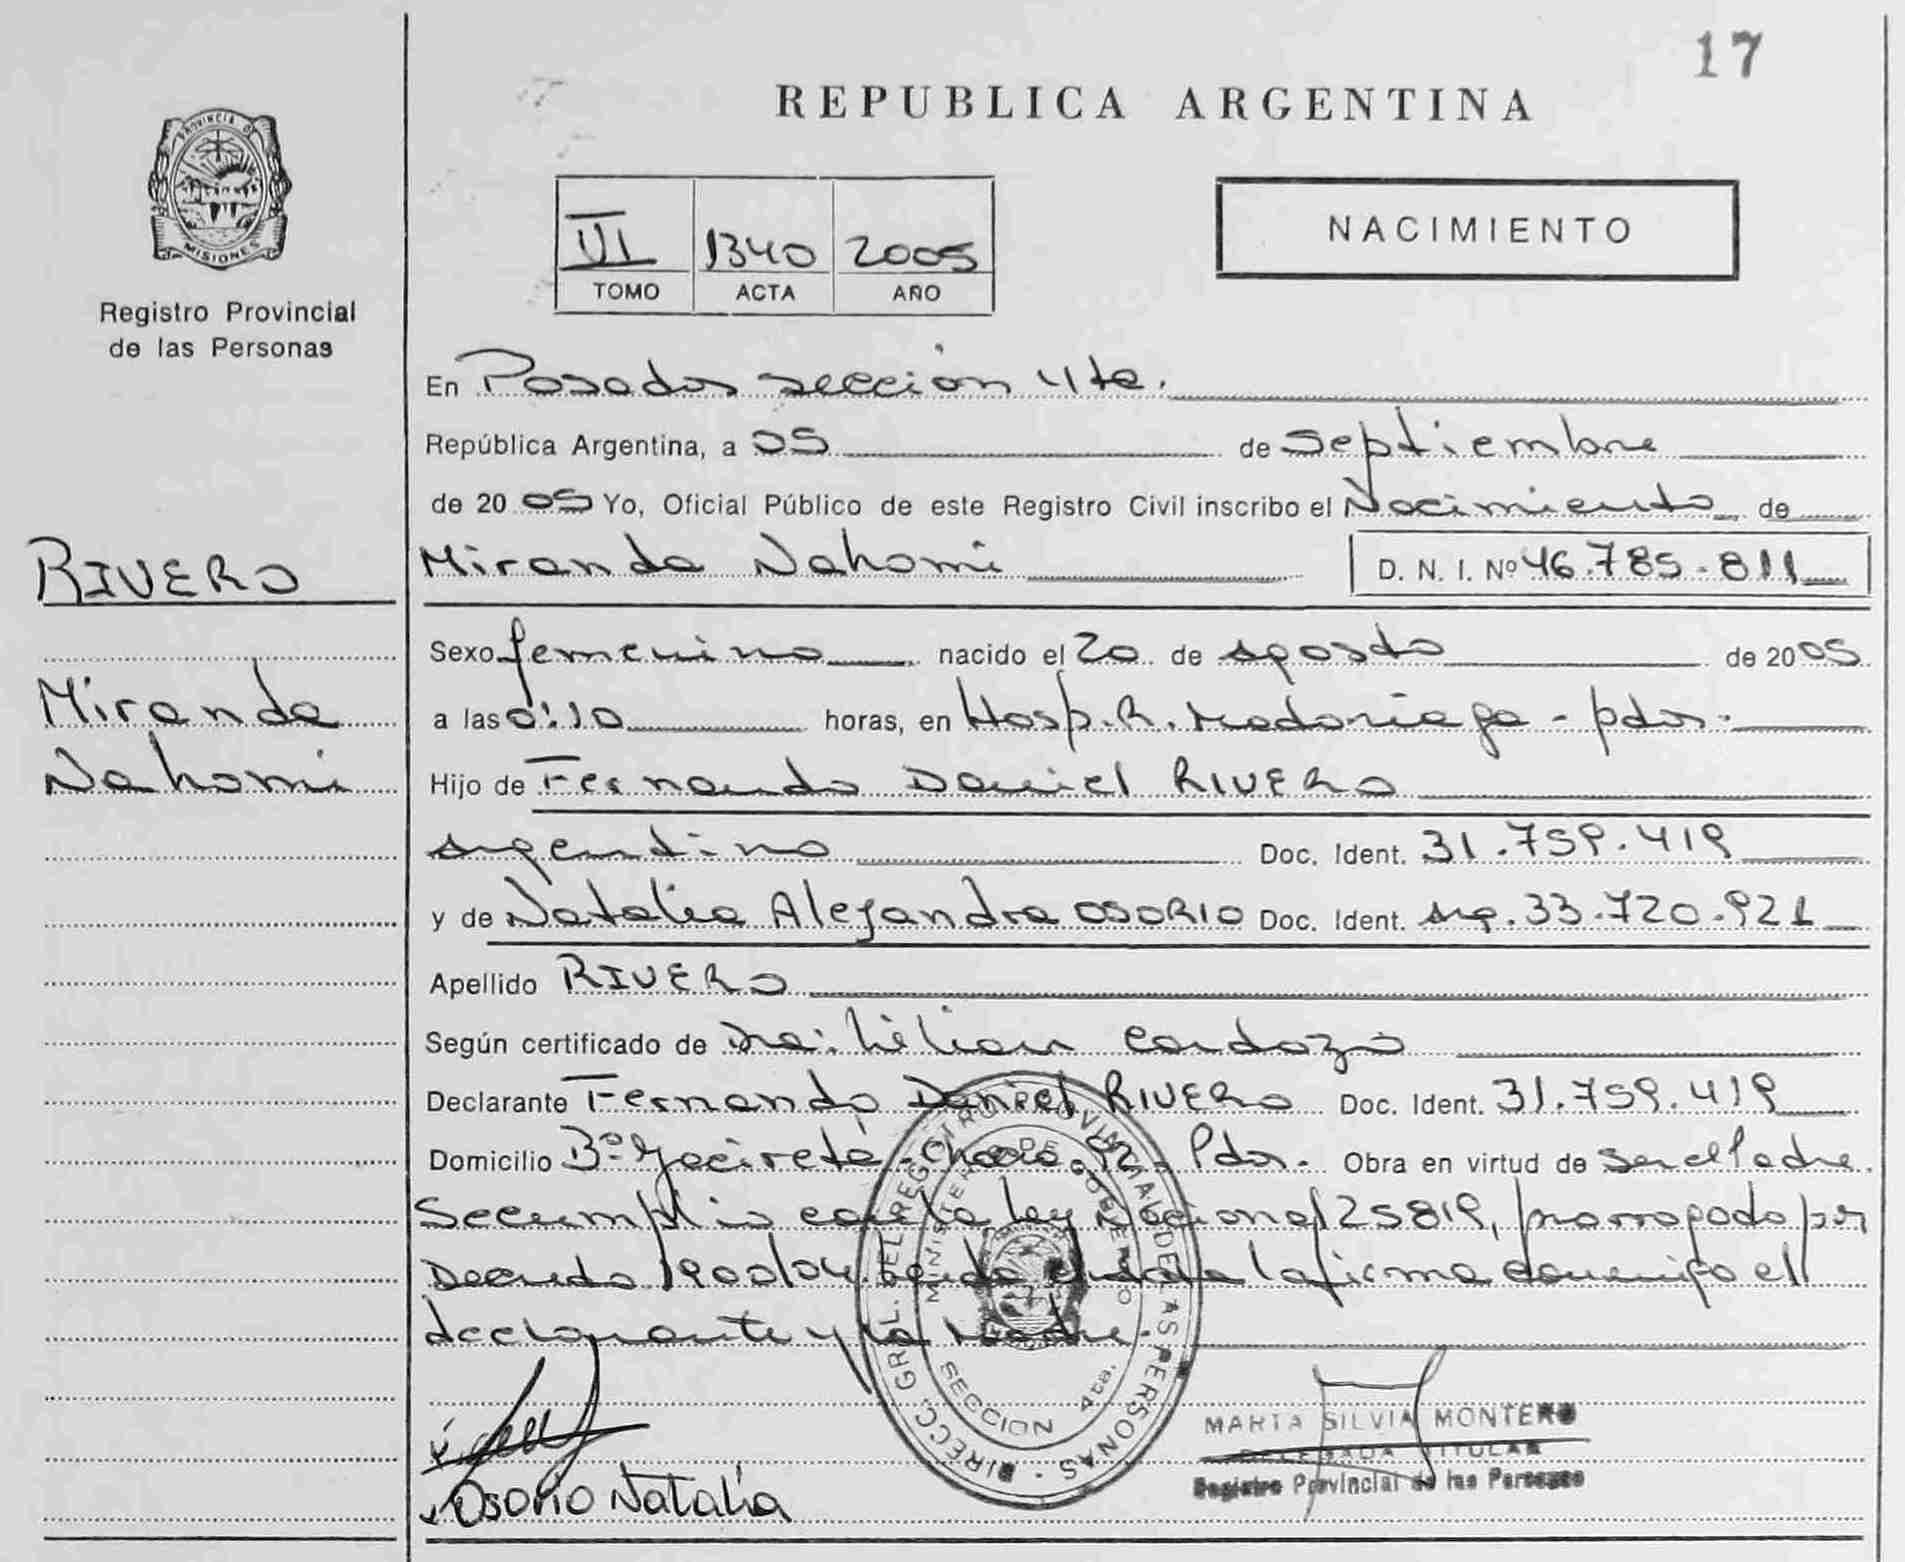 17
REPUBLICA ARGENTINA
PROVINCIA DE
MISIONES
Registro Provincial
de las Personas
VI 1340 2005
TOMO ACTA AÑO
NACIMIENTO
En Posadas sección 4ta.
República Argentina, a 05 de septiembre
de 2005 Yo, Oficial Público de este Registro Civil inscribo el Nacimiento de
RIVERO
Miranda Nahomi D. N. I. Nº 46.785.811
Sexo femenino nacido el 20 de agosto de 2005
Miranda
Nahomi
a las 0:10 horas, en Hosp. R. Madariaga - pdas.
Hijo de Fernando Daniel RIVERO
argentino Doc. Ident. 31.759.419
y de Natalia Alejandra OSORIO Doc. Ident. arg. 33.720.921
Apellido RIVERO
Según certificado de Dra. Lilian Cardozo
Declarante Fernando Daniel RIVERO Doc. Ident. 31.759.419
Domicilio Bº Yacireta - 92 - Pdas. Obra en virtud de ser el Padre.
Se cumplió con la ley Nacional 25819, prorrogado por
Decreto 1900/04. la firma conmigo el
declarante y la Madre.
DIRECC. GRAL. DEL REGISTRO PROVINCIAL DE LAS PERSONAS
MINISTERIO DE GOBIERNO
SECCION 4ta.
Osorio Natalia
MARTA SILVIA MONTERO
DELEGADA TITULAR
Registro Provincial de las Personas